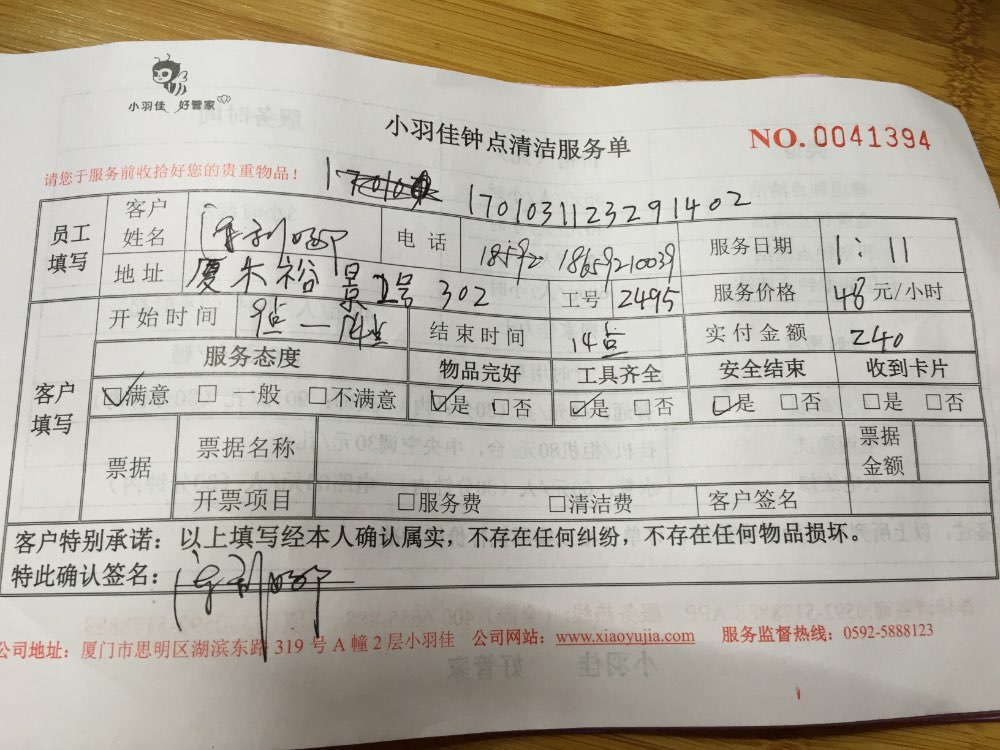 小羽佳 好管家
小羽佳钟点清洁服务单
NO.0041394
请您于服务前收拾好您的贵重物品！
1701031123291402
员工填写 客户姓名 电话 18659210039 服务日期 1:11
地址 厦 裕景 号302 工号 2495 服务价格 48元/小时
开始时间 9点—14点 结束时间 14点 实付金额 240
客户填写 服务态度 物品完好 工具齐全 安全结束 收到卡片
☑满意 □一般 □不满意 ☑是 □否 ☑是 □否 ☑是 □否 □是 □否
票据 票据名称 票据金额
开票项目 □服务费 □清洁费 客户签名
客户特别承诺：以上填写经本人确认属实，不存在任何纠纷，不存在任何物品损坏。
特此确认签名：
公司地址：厦门市思明区湖滨东路 319 号 A 幢 2 层小羽佳 公司网站：www.xiaoyujia.com 服务监督热线：0592-5888123